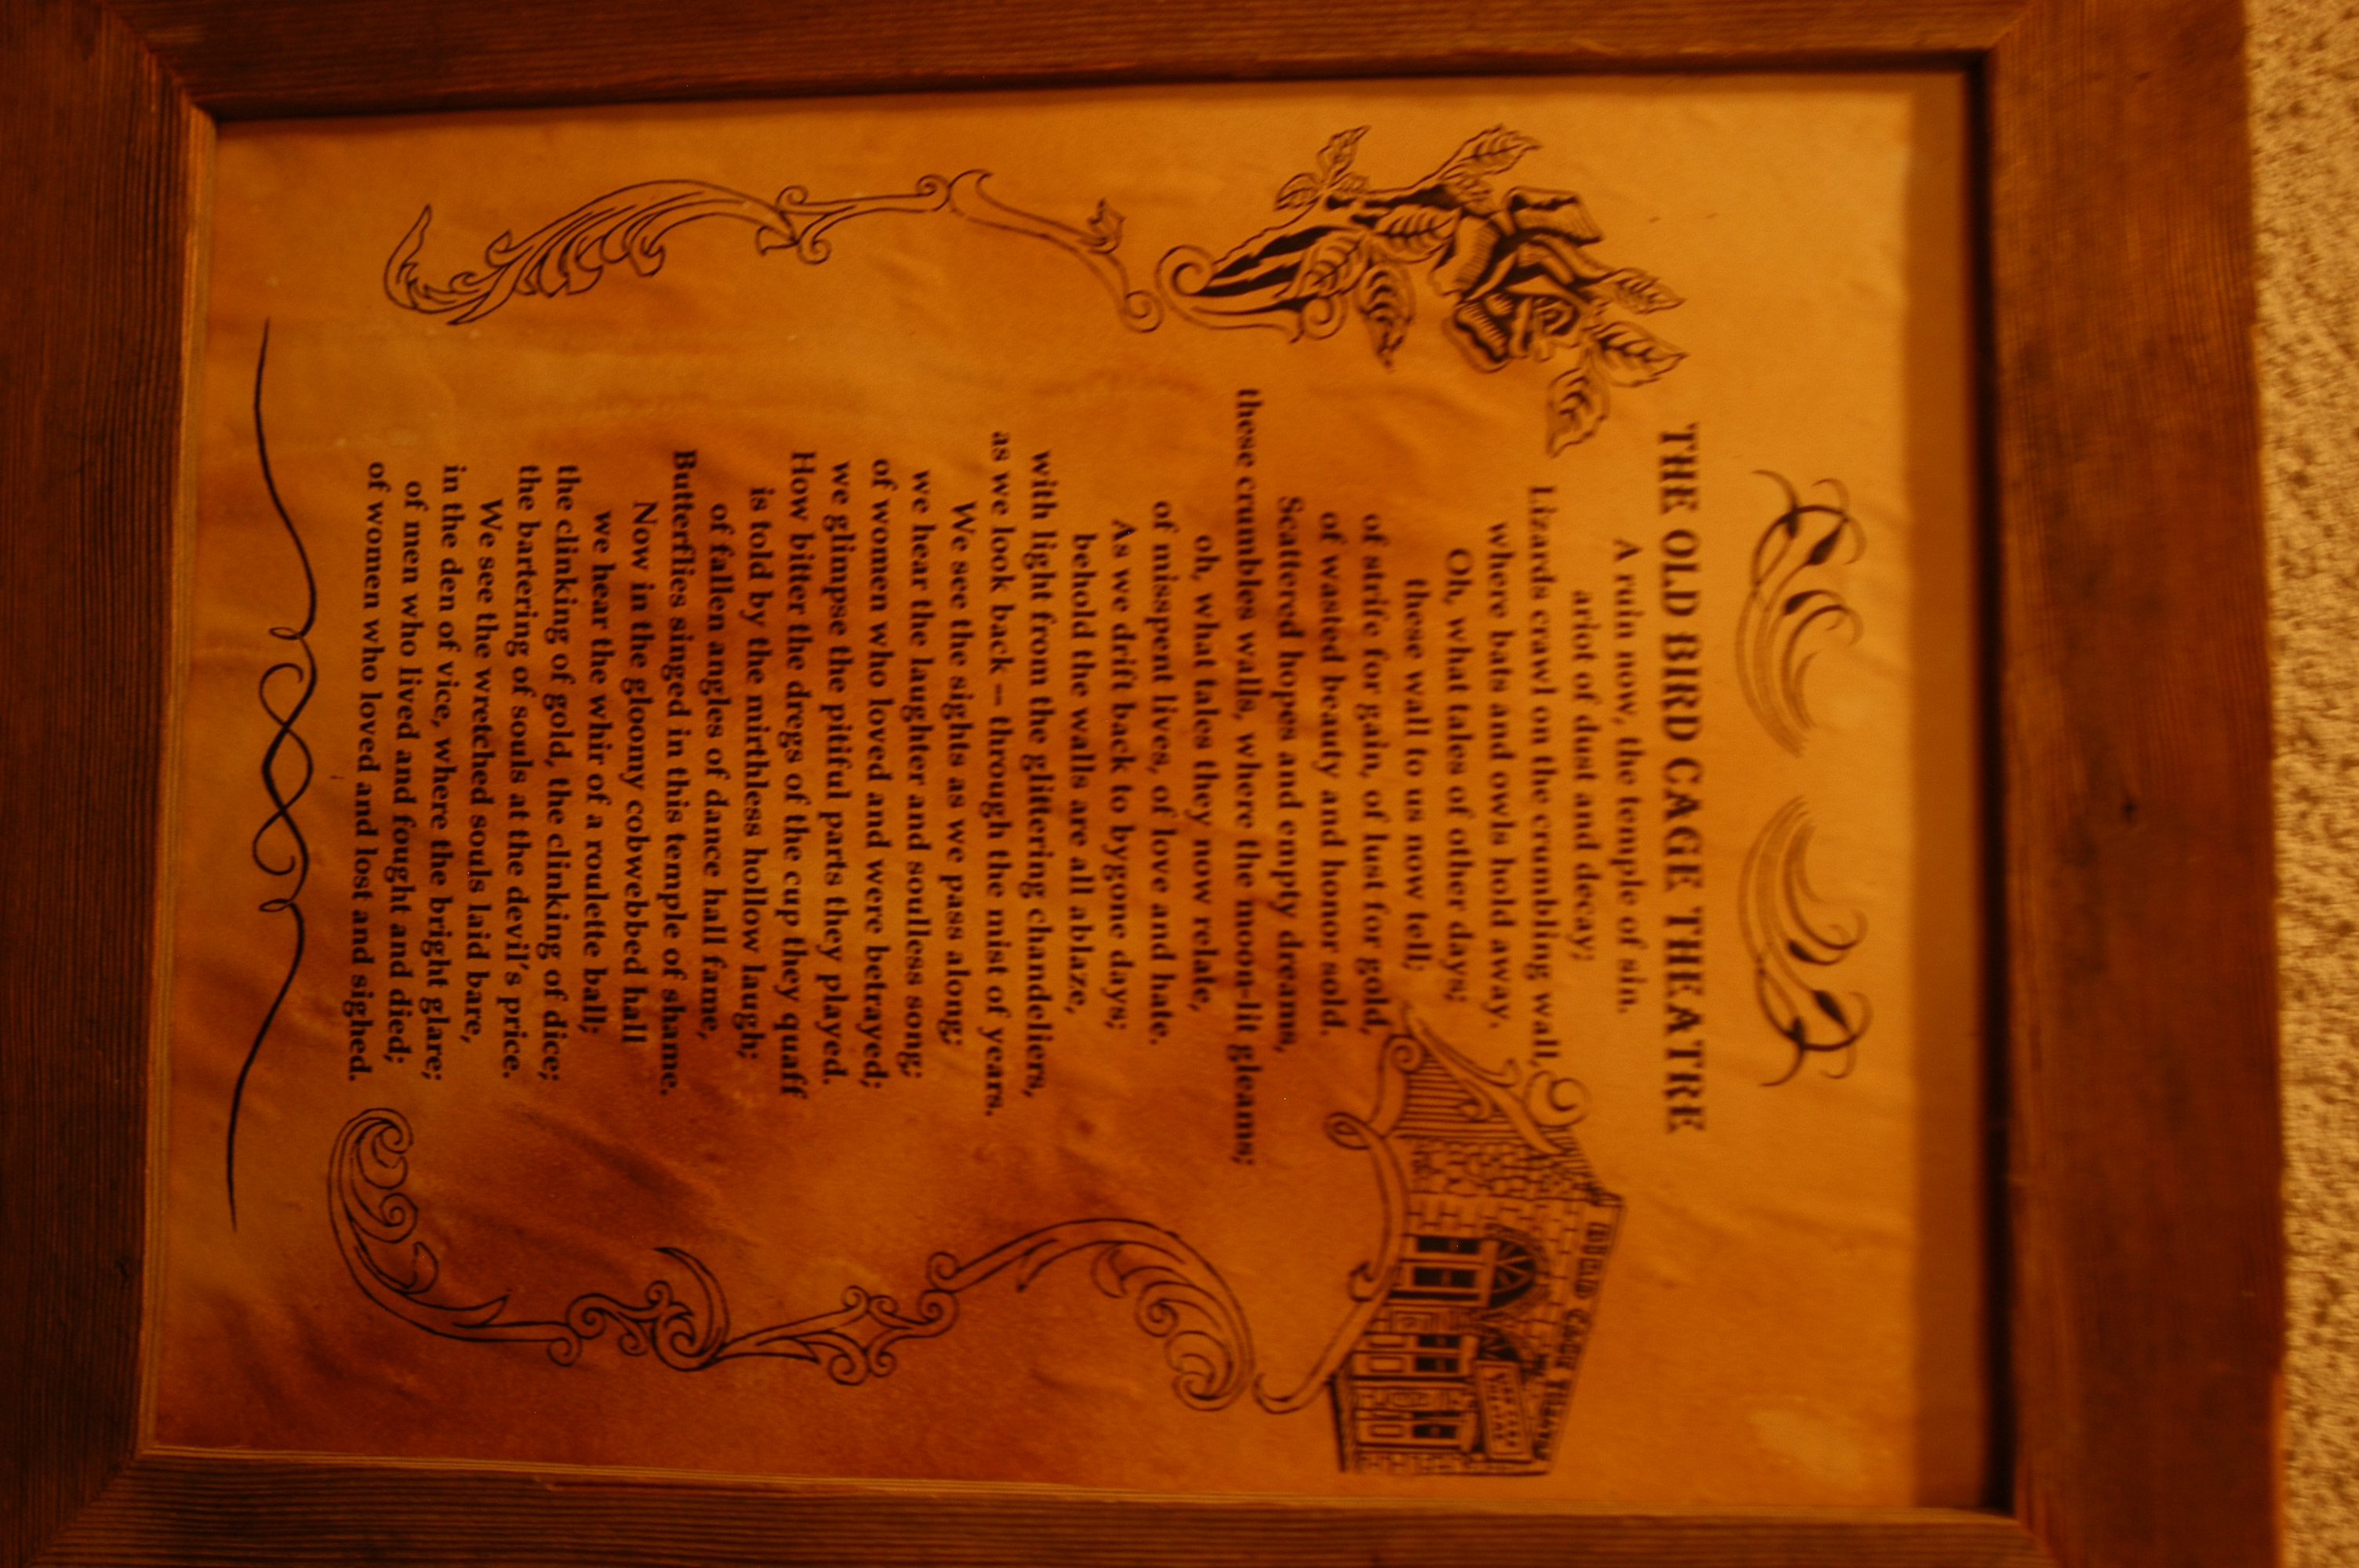 THE OLD BIRD CAGE THEATRE
A ruin now, the temple of sin.
ariot of dust and decay;
Lizards crawl on the crumbling wall,
where bats and owls hold away.
Oh, what tales of other days;
these wall to us now tell;
of strife for gain, of lust for gold,
of wasted beauty and honor sold.
Scattered hopes and empty dreams,
these crumbles walls, where the moon-lit gleams;
oh, what tales they now relate,
of misspent lives, of love and hate.
As we drift back to bygone days;
behold the walls are all ablaze,
with light from the glittering chandeliers,
as we look back — through the mist of years.
We see the sights as we pass along;
we hear the laughter and soulless song;
of women who loved and were betrayed;
we glimpse the pitiful parts they played.
How bitter the dregs of the cup they quaff
is told by the mirthless hollow laugh;
of fallen angles of dance hall fame,
Butterflies singed in this temple of shame.
Now in the gloomy cobwebbed hall
we hear the whir of a roulette ball;
the clinking of gold, the clinking of dice;
the bartering of souls at the devil's price.
We see the wretched souls laid bare,
in the den of vice, where the bright glare;
of men who lived and fought and died;
of women who loved and lost and sighed.
BIRD CAGE THEATRE